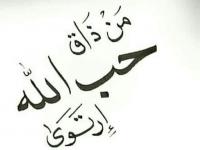 مَنْ ذَاقَ
حب الله
إرتَوَىٰ